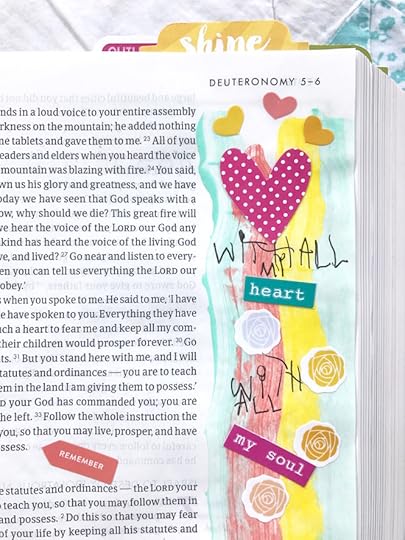 OUT!
shine
DEUTERONOMY 5–6
nds in a loud voice to your entire assembly
rkness on the mountain; he added nothing
ne tablets and gave them to me. 23 All of you
eaders and elders when you heard the voice
mountain was blazing with fire. 24 You said,
wn us his glory and greatness, and we have
oday we have seen that God speaks with a
ow, why should we die? This great fire will
we hear the voice of the LORD our God any
nkind has heard the voice of the living God
ve, and lived? 27 Go near and listen to every-
en you can tell us everything the LORD our
obey.'
s when you spoke to me. He said to me, 'I have
e have spoken to you. Everything they have
uch a heart to fear me and keep all my com-
their children would prosper forever. 30 Go
ts. 31 But you stand here with me, and I will
tatutes and ordinances — you are to teach
em in the land I am giving them to possess.'
D your God has commanded you; you are
he left. 33 Follow the whole instruction the
you, so that you may live, prosper, and have
ssess.
REMEMBER
e statutes and ordinances — the LORD your
o teach you, so that you may follow them in
and possess. 2 Do this so that you may fear
of your life by keeping all his statutes and
WITH ALL
MY
heart
WITH
ALL
my soul